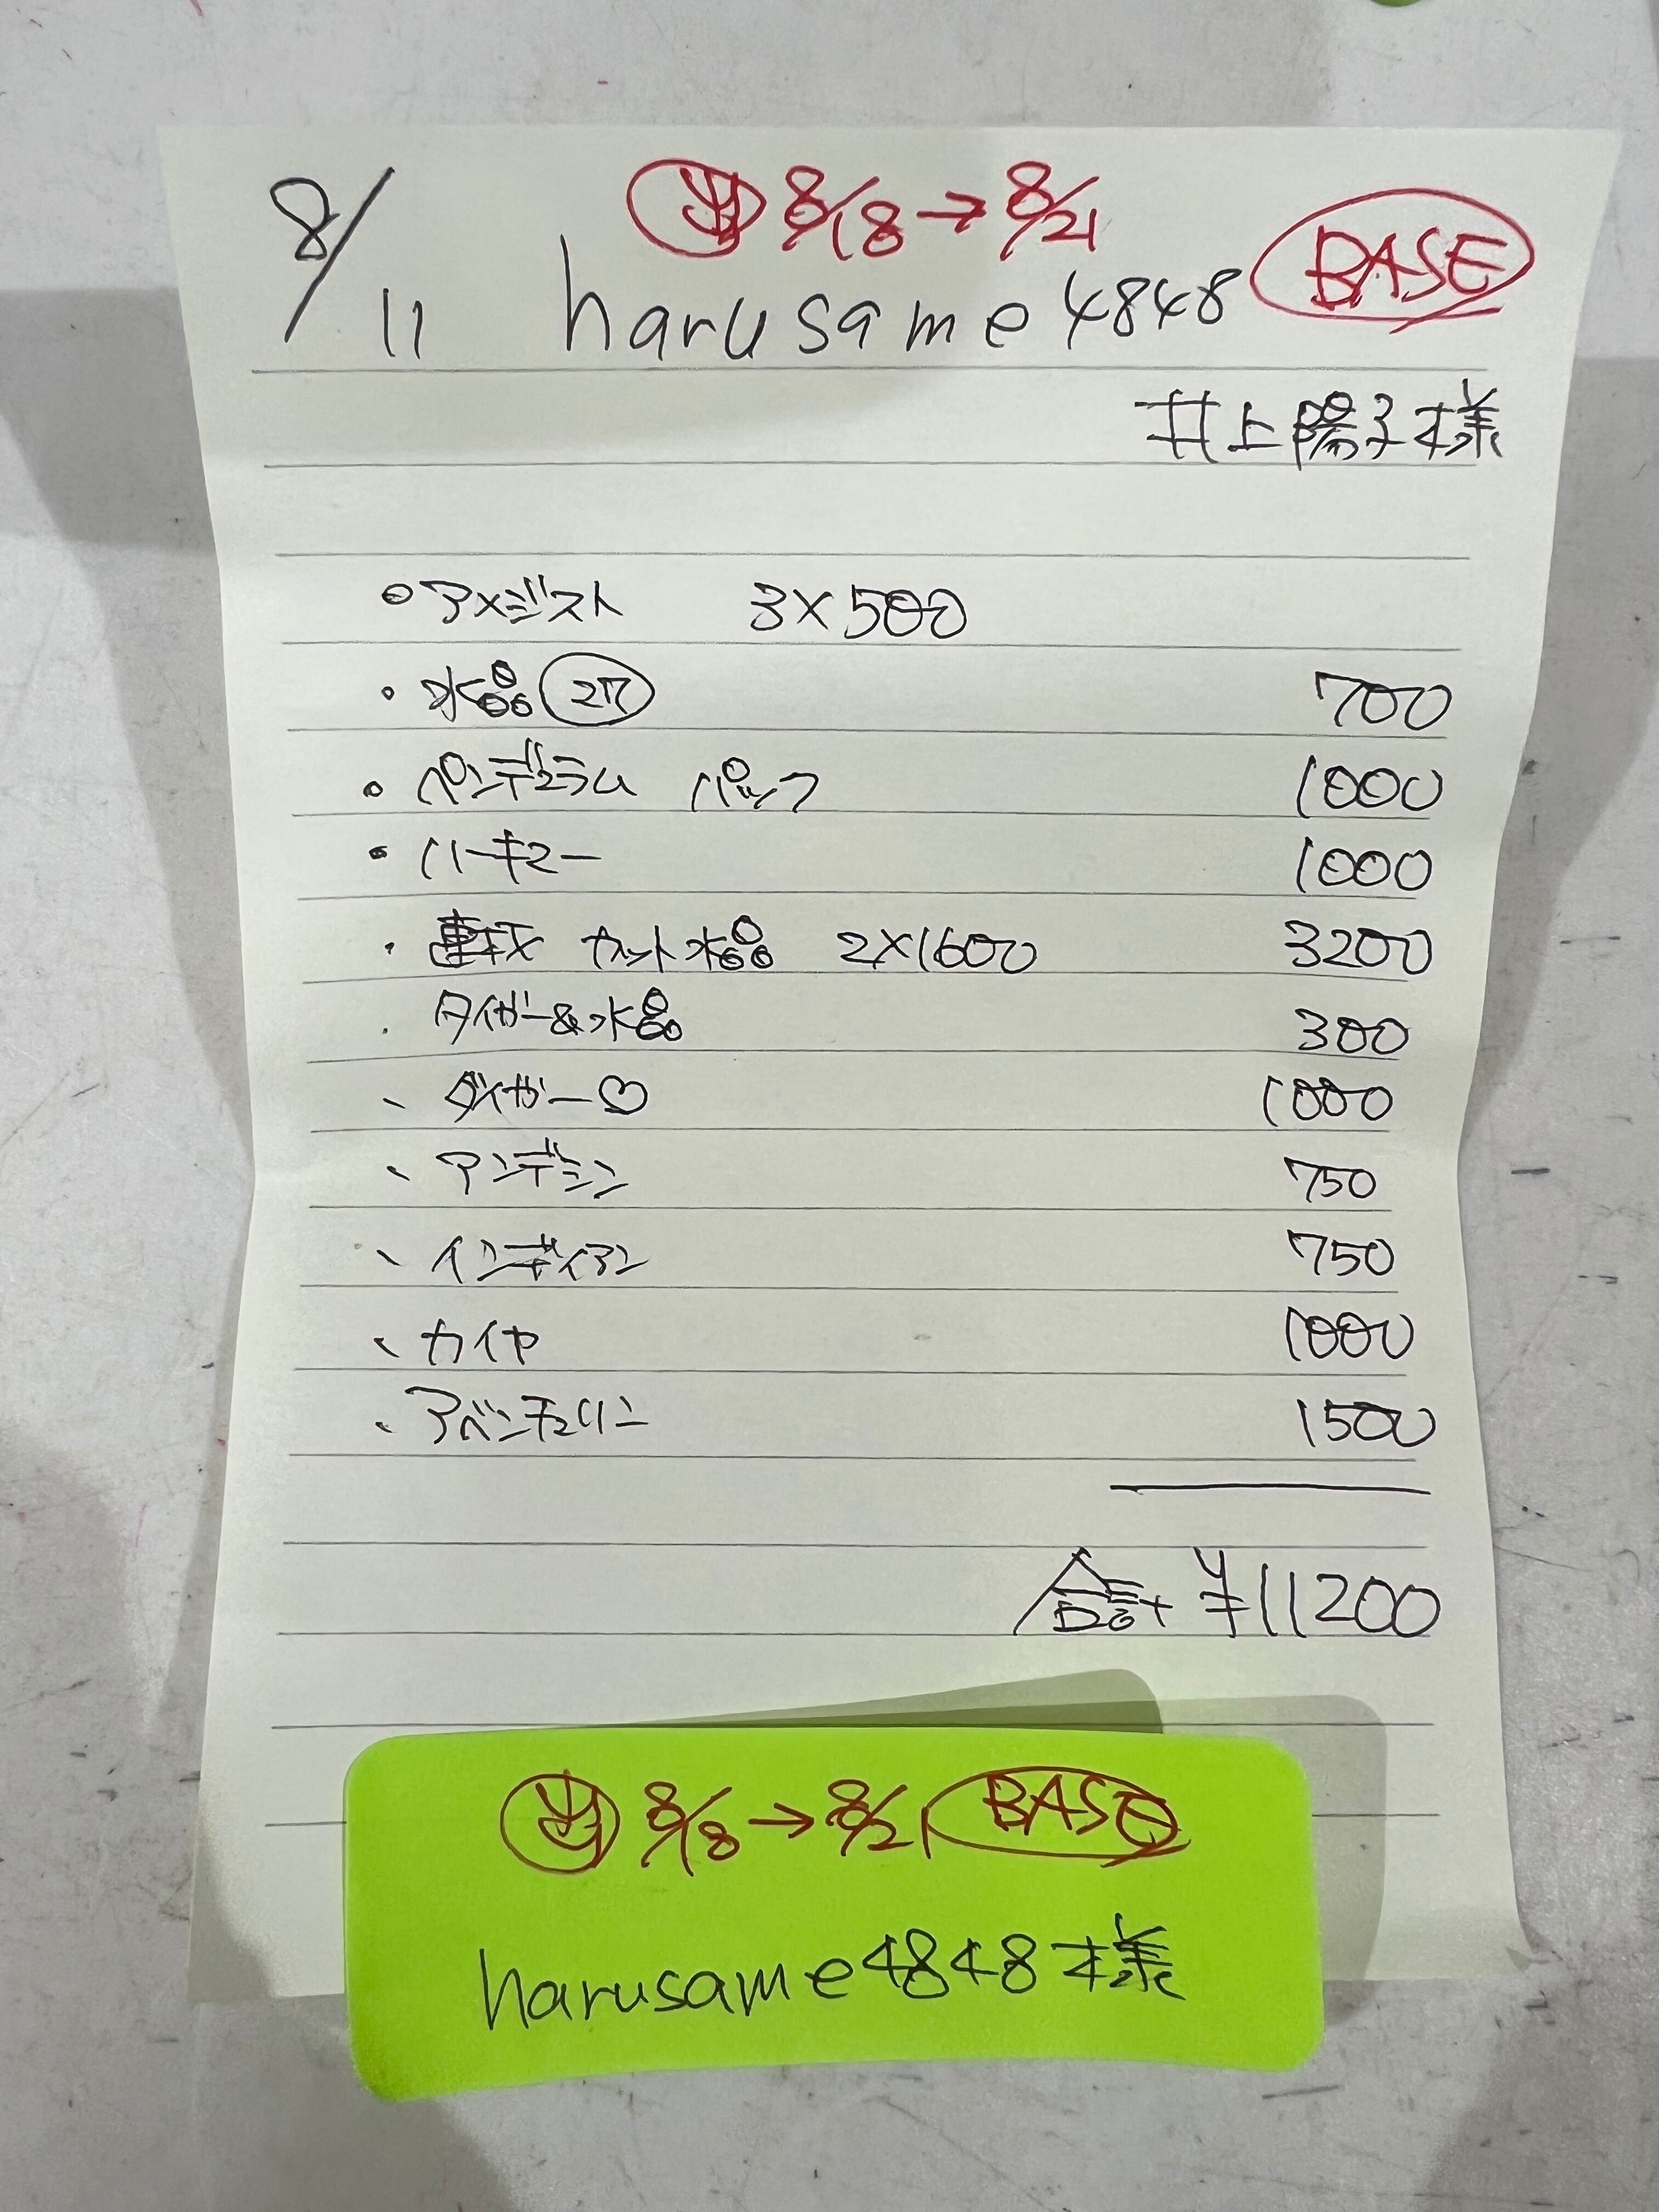 8/11
8/18→8/21 BASE
harusame4848
井上陽子様
・アメジスト 3×500
・水晶 700
・ペンデュラム パック 1000
・ハーキマー 1000
・カット水晶 2×1600 3200
・タイガー&水晶 300
、タイガー♡ 1000
、アンデシン 750
、インディアン 750
、カイヤ 1000
、アベンチュリン 1500
合計 ¥11200
8/18→8/21 BASE
harusame4848様